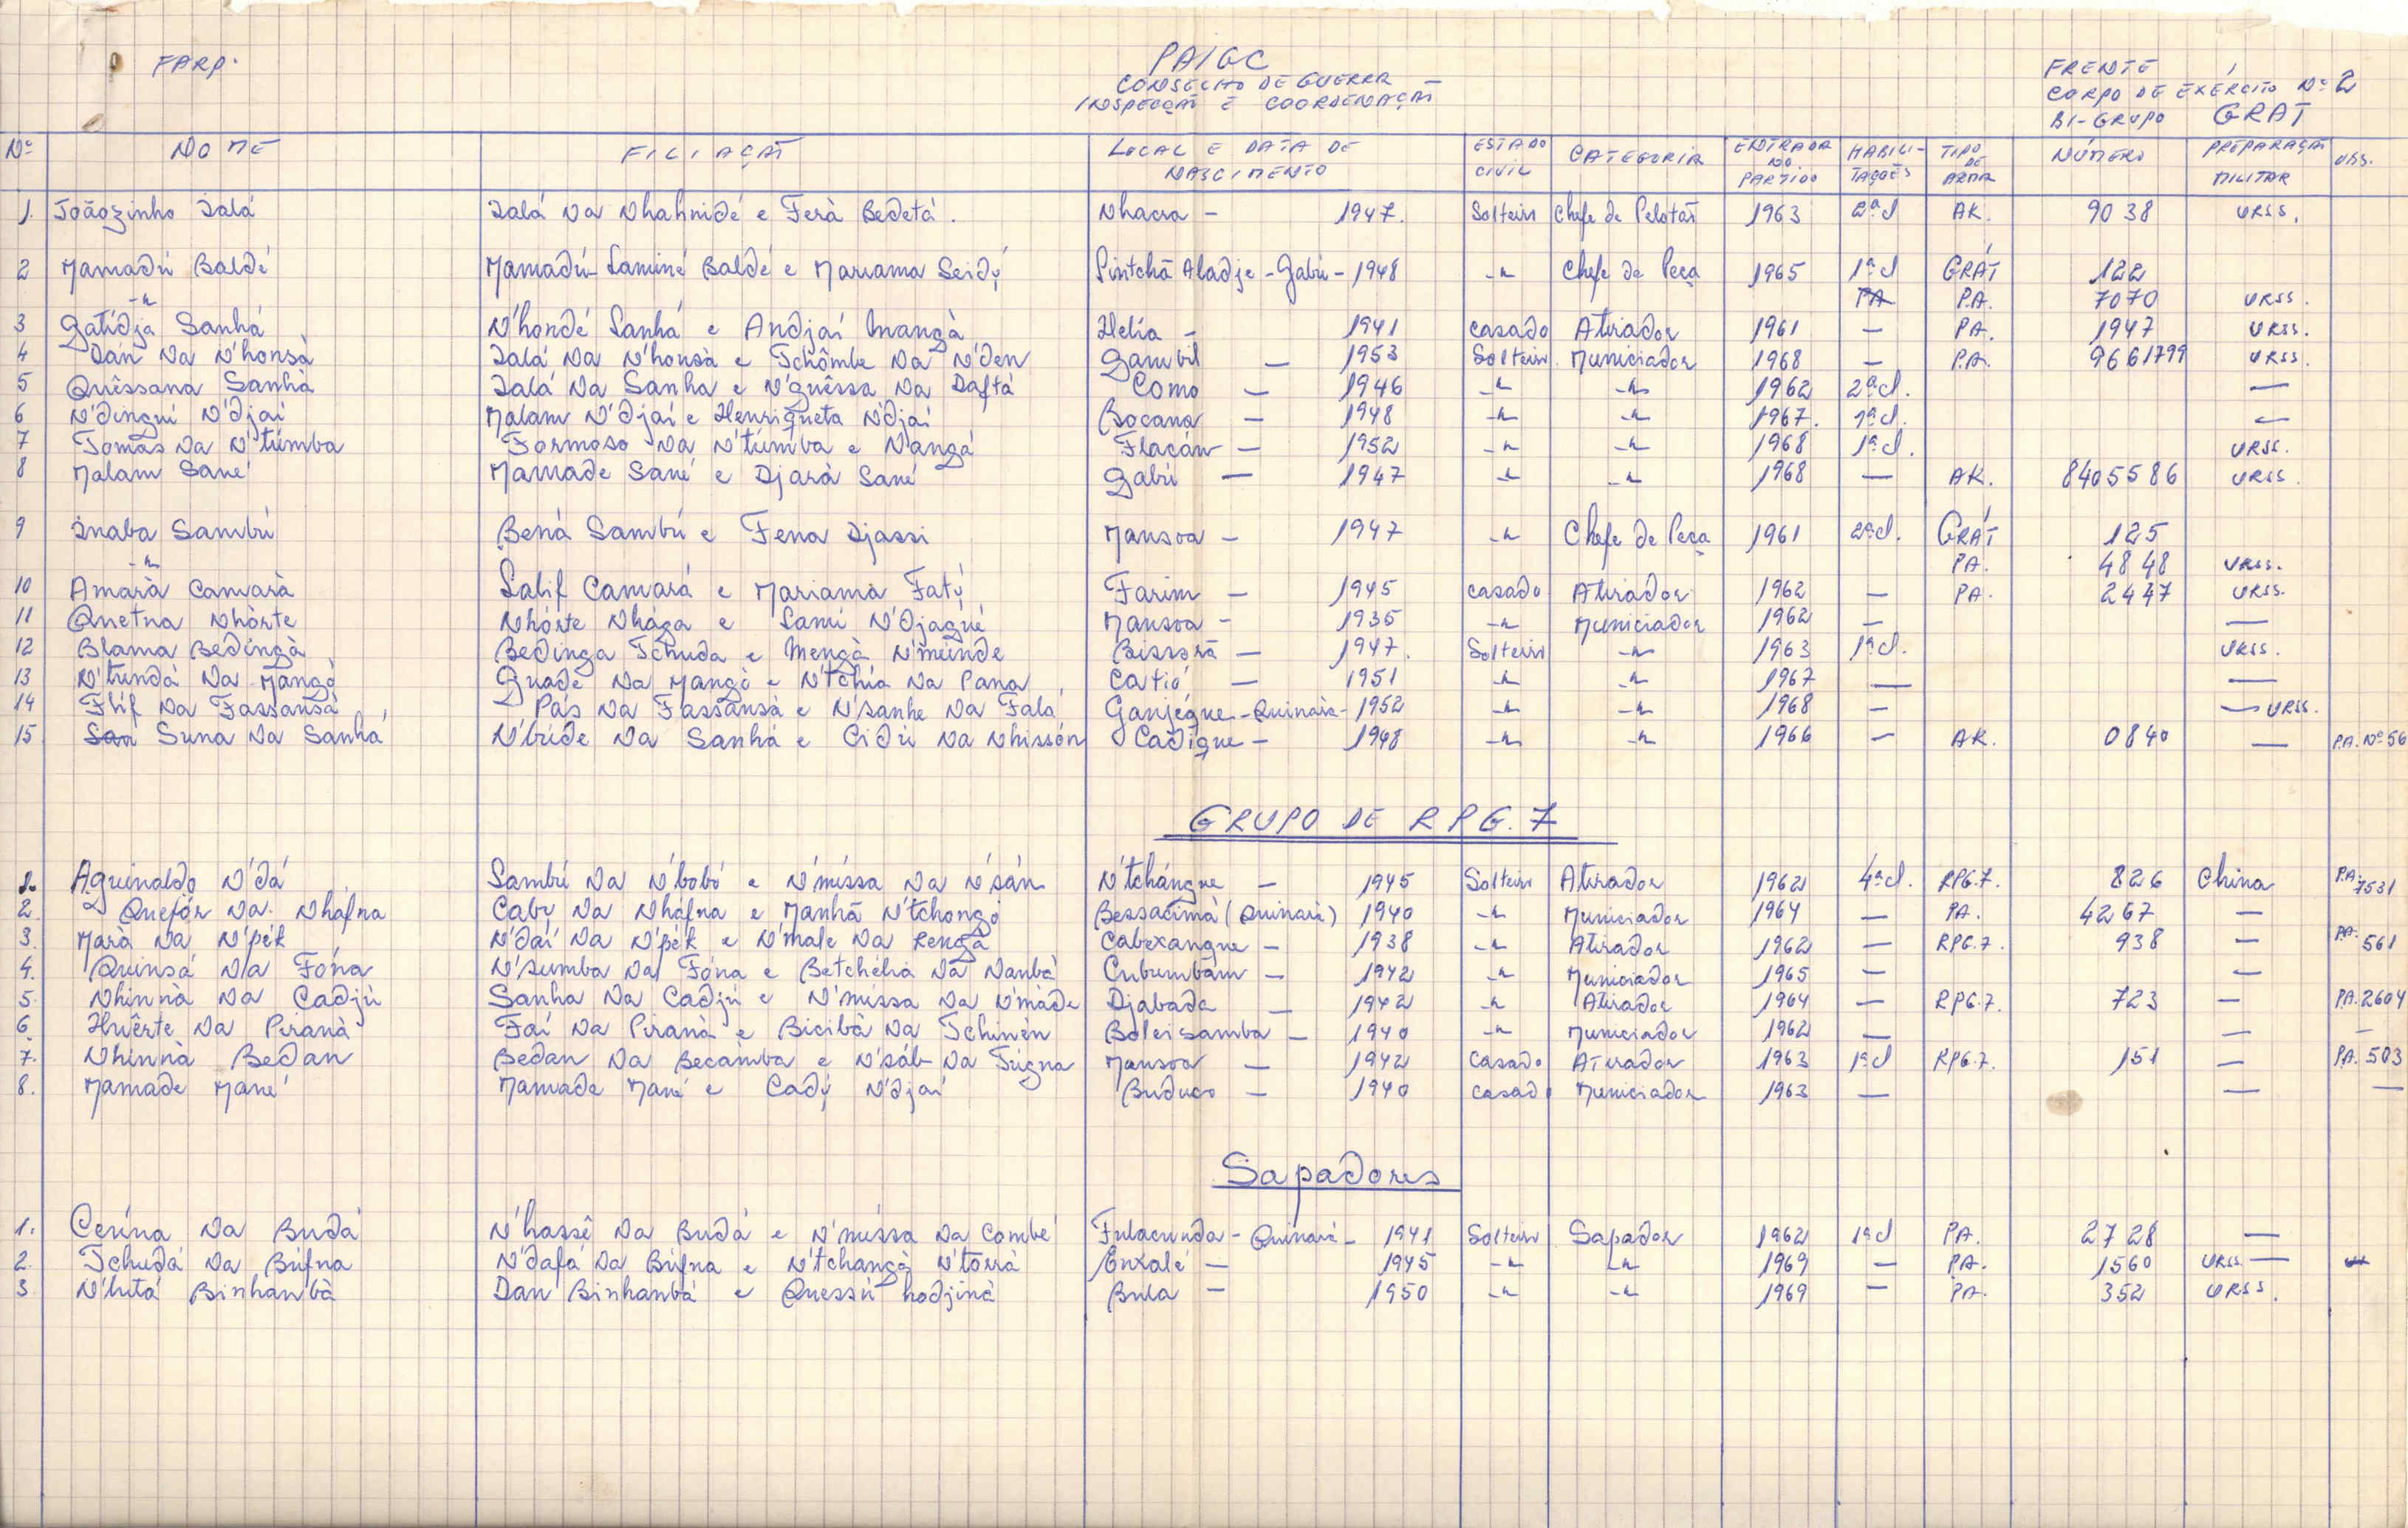 FARP.
PAIGC
CONSELHO DE GUERRA
INSPECÇÃO E COORDENAÇÃO
FRENTE
CORPO DE EXÉRCITO Nº 2
BI-GRUPO GRAT
Nº NOME FILIAÇÃO LOCAL E DATA DE NASCIMENTO ESTADO CIVIL CATEGORIA ENTRADA NO PARTIDO HABILITAÇÕES TIPO DE ARMA NÚMERO PREPARAÇÃO MILITAR OBS.
1. Joãozinho Ialá Ialá Na Nhahnidé e Ferà Bedetá. Nhacra - 1947. Solteiro Chefe de Pelotão 1963 2ªcl AK. 9038 URSS.
2 Mamadú Baldé Mamadú Laminé Baldé e Mariama Seidy Pintchã Aladje - Gabú - 1948 -"- Chefe de Peça 1965 1ªcl GRÁT 122
-"- PA P.A. 7070 URSS.
3 Gatídja Sanhá N'hondé Sanhá e Andjaí Mangà Helia - 1941 casado Atirador 1961 — PA. 1947 URSS.
4 Dán Na N'honsà Ialá Na N'honsà e Tchômbe Na N'den Gambil — 1953 Solteiro Municiador 1968 — P.A. 9661799 URSS.
5 Quêssana Sanhà Ialá Na Sanha e N'guêssa Na Daftá Como — 1946 -"- -"- 1962 2ªcl. —
6 N'dinguí N'djaí Malam N'djaí e Henriqueta N'djaí Bocana — 1948 -"- -"- 1967. 1ªcl. —
7 Tomás Na N'túmba Formoso Na N'túmba e Nangá Flaçán — 1952 -"- -"- 1968 1ªcl. URSS.
8 Malam Sané Mamade Sané e Djarà Sané Gabú — 1947 -"- -"- 1968 — AK. 8405586 URSS.
9 Inaba Sambú Bená Sambú e Fena Djassi Mansoa - 1947 -"- Chefe de Peça 1961 2ªcl. GRÁT 125
-"- PA. 4848 URSS.
10 Amarà Camarà Salif Camará e Mariama Faty Farim — 1945 casado Atirador 1962 — PA. 2447 URSS.
11 Quetna Nhòrte Nhórte Nhága e Samú N'djagué Mansoa - 1935 -"- Municiador 1962 — —
12 Blama Bedingà Bedinga Tchuda e Mengà N'múnde Bissorã — 1947. Solteiro -"- 1963 1ªcl. URSS.
13 N'tundá Na Mangò Guade Na Mangò e N'tchía Na Pana Catió — 1951 -"- -"- 1967 — —
14 Flif Na Fassansà Pás Na Fassansà e N'sanhe Na Falá Ganjégue - Quinàra - 1952 -"- -"- 1968 — — URSS.
15 San Suna Na Sanhá N'búde Na Sanhá e Cidú Na Nhissón Cadique - 1948 -"- -"- 1966 — AK. 0840 — P.A. Nº 56
GRUPO DE RPG. 7
1. Aguinaldo N'dá Sambú Na N'bobó e N'míssa Na N'sán N'tchángue — 1945 Solteiro Atirador 1962 4ªcl. RPG.7. 826 China PA. 7531
2. Quefór Na Nháfna Caby Na Nháfna e Manhã N'tchongó Bessacimà (Quinarà) 1940 -"- Municiador 1964 — PA. 4267 —
3. Marà Na N'pék N'daí Na N'pék e N'male Na Rengà Cabexangue - 1938 -"- Atirador 1962 — RPG.7. 938 — PA. 561
4. Quinsá Na Fóna N'sumba Na Fóna e Betchélia Na Nanbà Cubumbám — 1942 -"- Municiador 1965 — —
5. Nhinnà Na Cadjú Sanha Na Cadjú e N'míssa Na N'màde Djabada — 1942 -"- Atirador 1964 — RPG.7. 723 — PA. 2604
6. Huêrte Na Piranà Faí Na Piranà e Bicibà Na Tchinèn Boleisamba — 1940 -"- Municiador 1962 — — —
7. Nhinnà Bedan Bedan Na Becàmba e N'sáb Na Túgna Mansoa — 1942 Casado Atirador 1963 1ªcl RPG.7. 151 — PA. 503
8. Mamade Mané Mamade Mané e Cady N'djaí Buduco — 1940 casado Municiador 1963 — — —
Sapadores
1. Cerína Na Budá N'hassê Na Budá e N'míssa Na Combé Fulacunda - Quinarà - 1941 Solteiro Sapador 1962 1ªcl PA. 2728 —
2. Tchudá Na Búfna N'dafá Na Búfna e N'tchangà N'torrà Enxalé — 1945 -"- -"- 1969 — PA. 1560 URSS. —
3 N'hutá Binhanbà Dan Binhanbá e Quessú hodjinà Bula — 1950 -"- -"- 1969 — PA. 352 URSS.